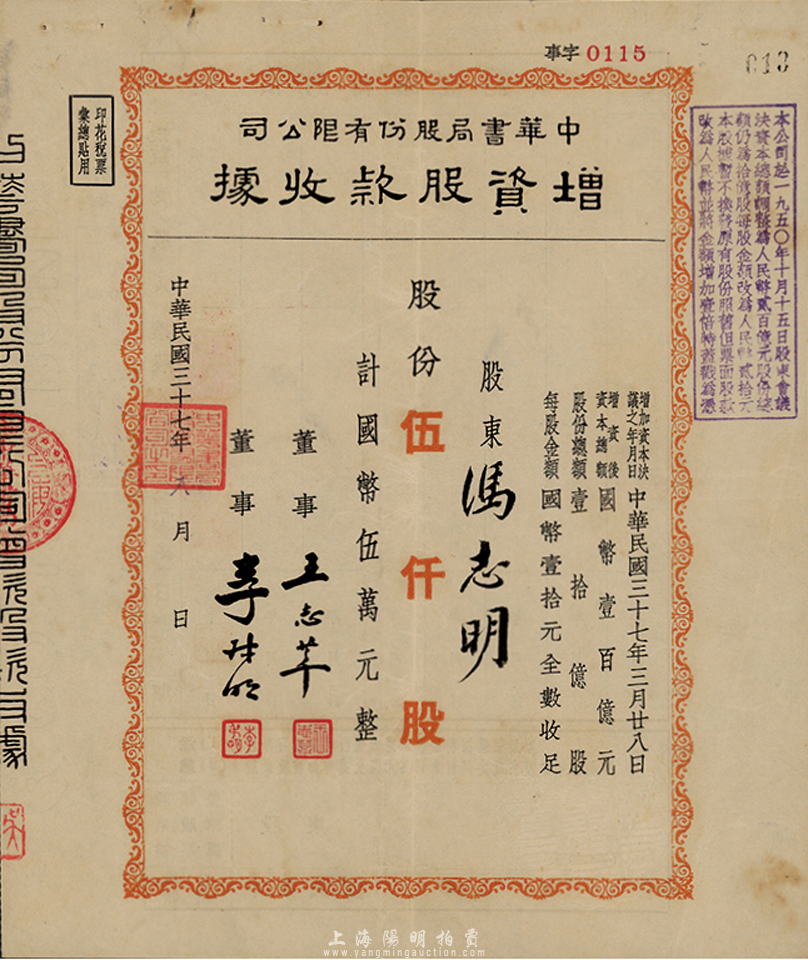 事字 0115
013
中華書局股份有限公司
增資股款收據
增加資本決議之年月日 中華民國三十七年三月廿八日
增資後資本總額 國幣壹百億元
股份總額 壹拾億股
每股金額 國幣壹拾元全數收足
股東 馮志明
股份伍仟股
計國幣伍萬元整
董事 王志莘
董事 李叔明
中華民國三十七年 六月 日
印花稅票
彙總貼用
本公司於一九五〇年十月十五日股東會議
決資本總額調整為人民幣貳百億元股份總
額仍為拾億股每股金額改為人民幣貳拾元
本股據暫不換發原有股份照舊但票面股款
改為人民幣並將金額增加壹倍特蓋戳為憑
上海陽明拍賣
www.yangmingauction.com